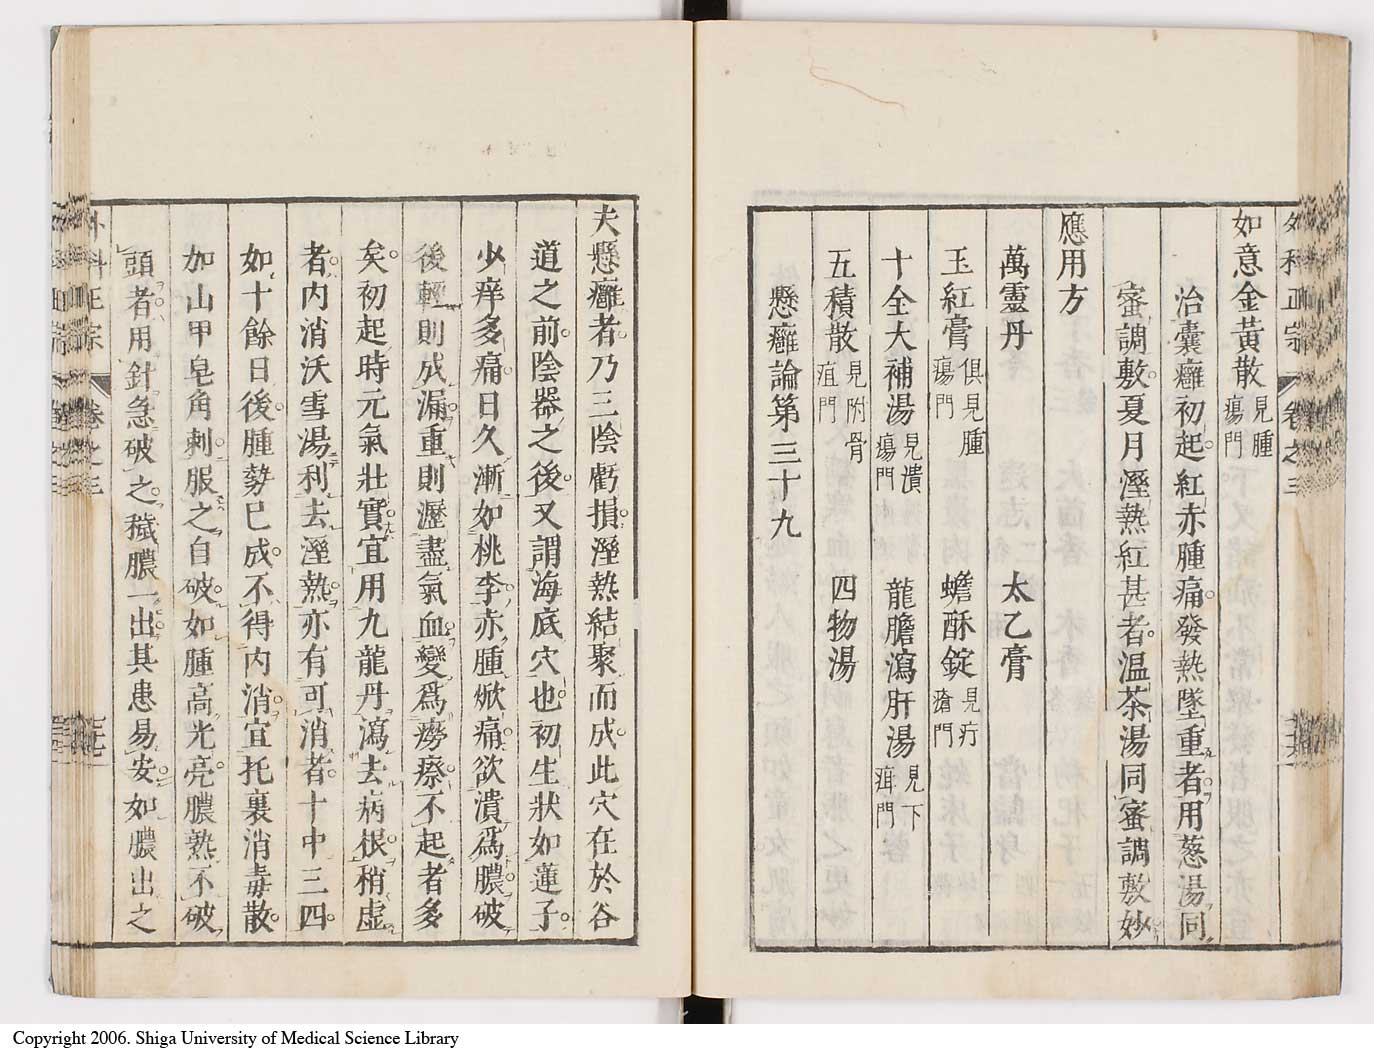 外科正宗 卷之三
如意金黃散 見腫瘍門
治囊癰初起紅赤腫痛發熱墜重者用葱湯同
蜜調敷夏月溼熱紅甚者温茶湯同蜜調敷妙
應用方
萬靈丹 太乙膏
玉紅膏 俱見腫瘍門 蟾酥錠 見疔瘡門
十全大補湯 見潰瘍門 龍膽瀉肝湯 見下疳門
五積散 見附骨疽門 四物湯
懸癰論第三十九
夫懸癰者乃三陰虧損溼熱結聚而成此穴在於谷
道之前陰器之後又謂海底穴也初生狀如蓮子
少痒多痛日久漸如桃李赤腫焮痛欲潰爲膿破
後輕則成漏重則瀝盡氣血變爲癆瘵不起者多
矣初起時元氣壯實宜用九龍丹瀉去病根稍虛
者內消沃雪湯利去溼熱亦有可消者十中三四
如十餘日後腫勢已成不得內消宜托裏消毒散
加山甲皂角刺服之自破如腫高光亮膿熟不破
頭者用針急破之穢膿一出其患易安如膿出之
外科正宗 卷之三
Copyright 2006. Shiga University of Medical Science Library